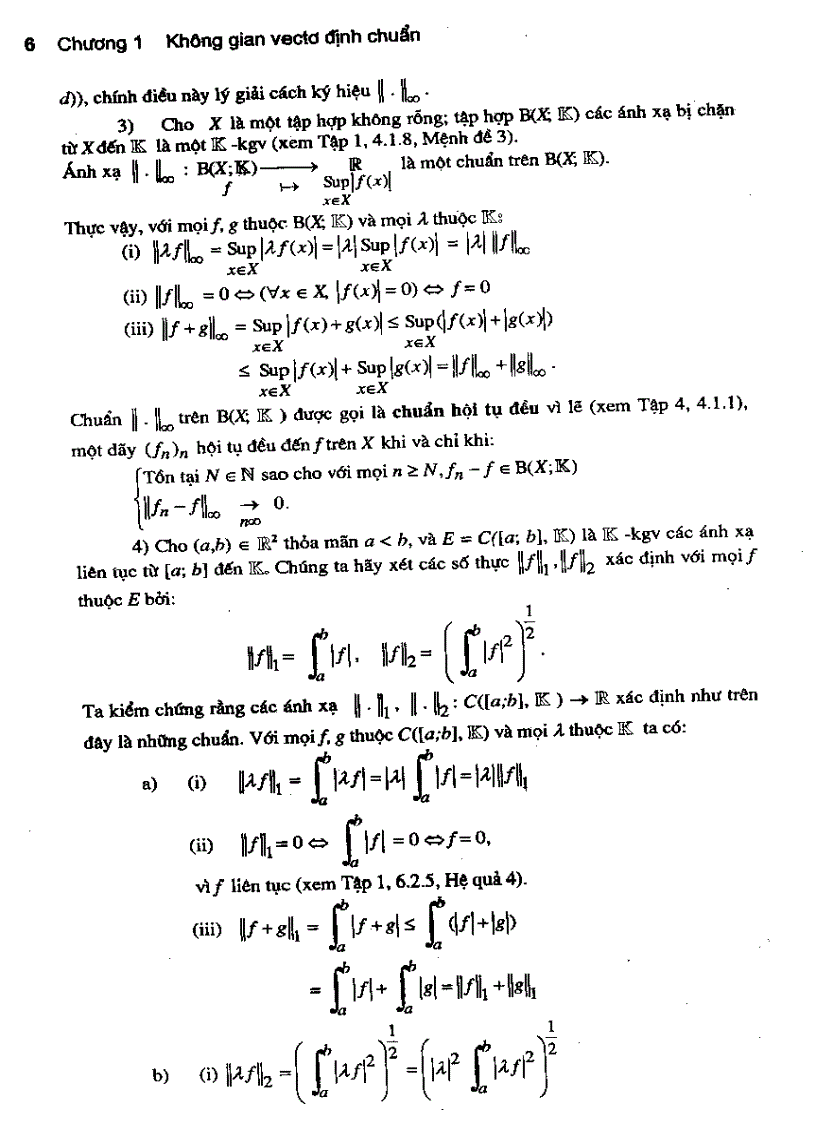 6 Chương 1 Không gian vectơ định chuẩn
d)), chính điều này lý giải cách ký hiệu ‖ . ‖∞ .
3) Cho X là một tập hợp không rỗng; tập hợp B(X; 𝕂) các ánh xạ bị chặn
từ X đến 𝕂 là một 𝕂 -kgv (xem Tập 1, 4.1.8, Mệnh đề 3).
Ánh xạ ‖ . ‖∞ : B(X;𝕂) ⟶ ℝ là một chuẩn trên B(X; 𝕂).
f ↦ Sup|f(x)|
x∈X
Thực vậy, với mọi f, g thuộc B(X; 𝕂) và mọi λ thuộc 𝕂:
(i) ‖λf‖∞ = Sup|λf(x)| = |λ| Sup|f(x)| = |λ| ‖f‖∞
x∈X x∈X
(ii) ‖f‖∞ = 0 ⇔ (∀x ∈ X, |f(x)| = 0) ⇔ f = 0
(iii) ‖f + g‖∞ = Sup|f(x) + g(x)| ≤ Sup(|f(x)| + |g(x)|)
x∈X x∈X
≤ Sup|f(x)| + Sup|g(x)| = ‖f‖∞ + ‖g‖∞ .
x∈X x∈X
Chuẩn ‖ . ‖∞ trên B(X; 𝕂 ) được gọi là chuẩn hội tụ đều vì lẽ (xem Tập 4, 4.1.1),
một dãy (fn)n hội tụ đều đến f trên X khi và chỉ khi:
{Tồn tại N ∈ ℕ sao cho với mọi n ≥ N, fn − f ∈ B(X;𝕂)
‖fn − f‖∞ → 0.
n∞
4) Cho (a,b) ∈ ℝ² thỏa mãn a < b, và E = C([a; b], 𝕂) là 𝕂 -kgv các ánh xạ
liên tục từ [a; b] đến 𝕂. Chúng ta hãy xét các số thực ‖f‖₁, ‖f‖₂ xác định với mọi f
thuộc E bởi:
‖f‖₁ = ∫ₐᵇ |f|, ‖f‖₂ = (∫ₐᵇ |f|²)^(1/2) .
Ta kiểm chứng rằng các ánh xạ ‖ . ‖₁, ‖ . ‖₂ : C([a;b], 𝕂 ) → ℝ xác định như trên
đây là những chuẩn. Với mọi f, g thuộc C([a;b], 𝕂) và mọi λ thuộc 𝕂 ta có:
a) (i) ‖λf‖₁ = ∫ₐᵇ |λf| = |λ| ∫ₐᵇ |f| = |λ|‖f‖₁
(ii) ‖f‖₁ = 0 ⇔ ∫ₐᵇ |f| = 0 ⇔ f = 0,
vì f liên tục (xem Tập 1, 6.2.5, Hệ quả 4).
(iii) ‖f + g‖₁ = ∫ₐᵇ |f + g| ≤ ∫ₐᵇ (|f| + |g|)
= ∫ₐᵇ |f| + ∫ₐᵇ |g| = ‖f‖₁ + ‖g‖₁
b) (i) ‖λf‖₂ = (∫ₐᵇ |λf|²)^(1/2) = (|λ|² ∫ₐᵇ |λf|²)^(1/2)